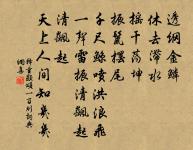 透網金鱗
休云滯水
搖干蕩坤
振鬣擺尾
千尺鯨噴洪浪飛
一聲雷振清飆起
清飆起
天上人間知幾幾
釋重顯頌一百則詞典
網集